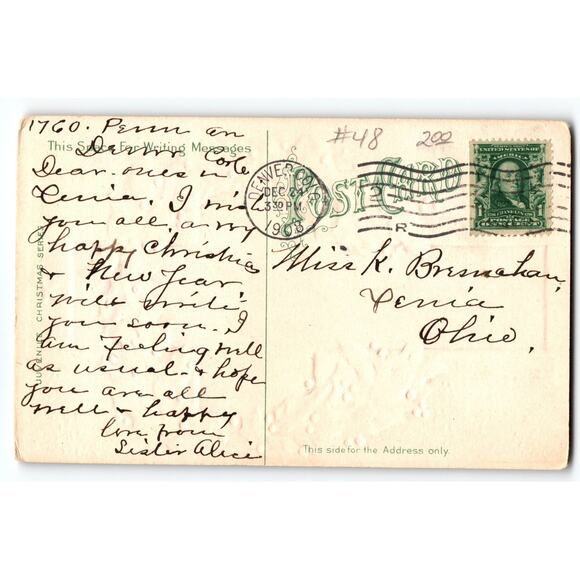 1760. Penn av
This Space For Writing Messages
Denver Colo
Dear ones in
Xenia. I wish
you all a very
happy Christmas
& New Year
will write
you soon. I
am feeling well
as usual & hope
you are all
well & happy
love from
Sister Alice
CHRISTMAS SERIES
#48
200
POST CARD
DENVER, COLO.
DEC 24
330 P.M.
1908
R
UNITED STATES OF
AMERICA
1
Miss K. Bresnahan,
Xenia
Ohio.
This side for the Address only.